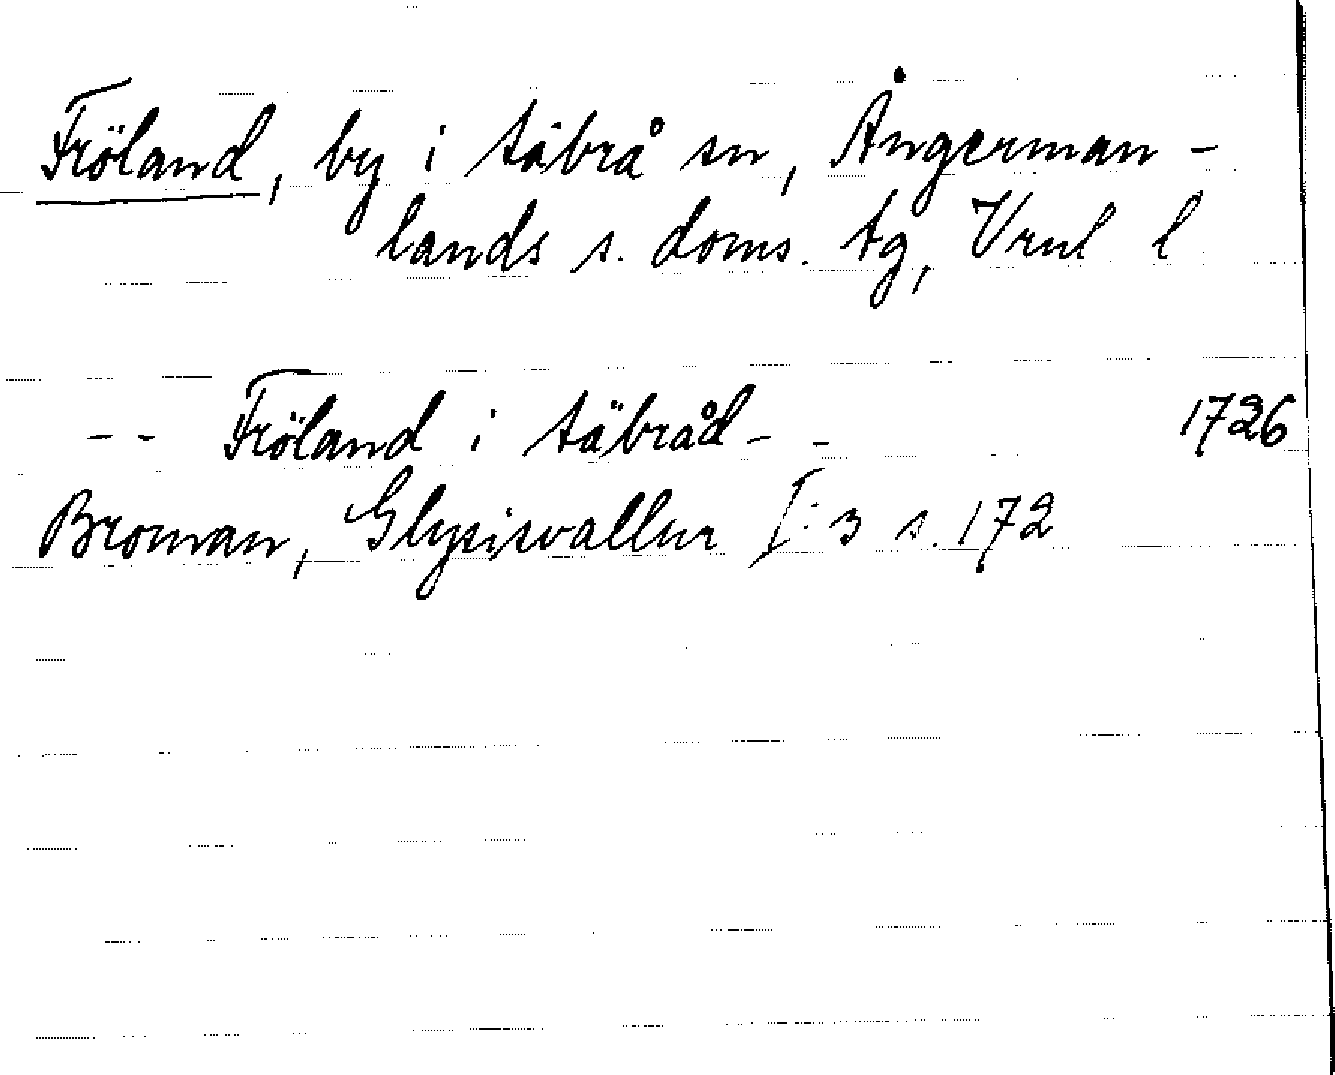 Fröland, by i säbrå sn, Ångerman-
lands s. doms. tg, Vrnl l
-- Fröland i säbråd--
1726
Broman, Glysisvallur I:3 s. 172